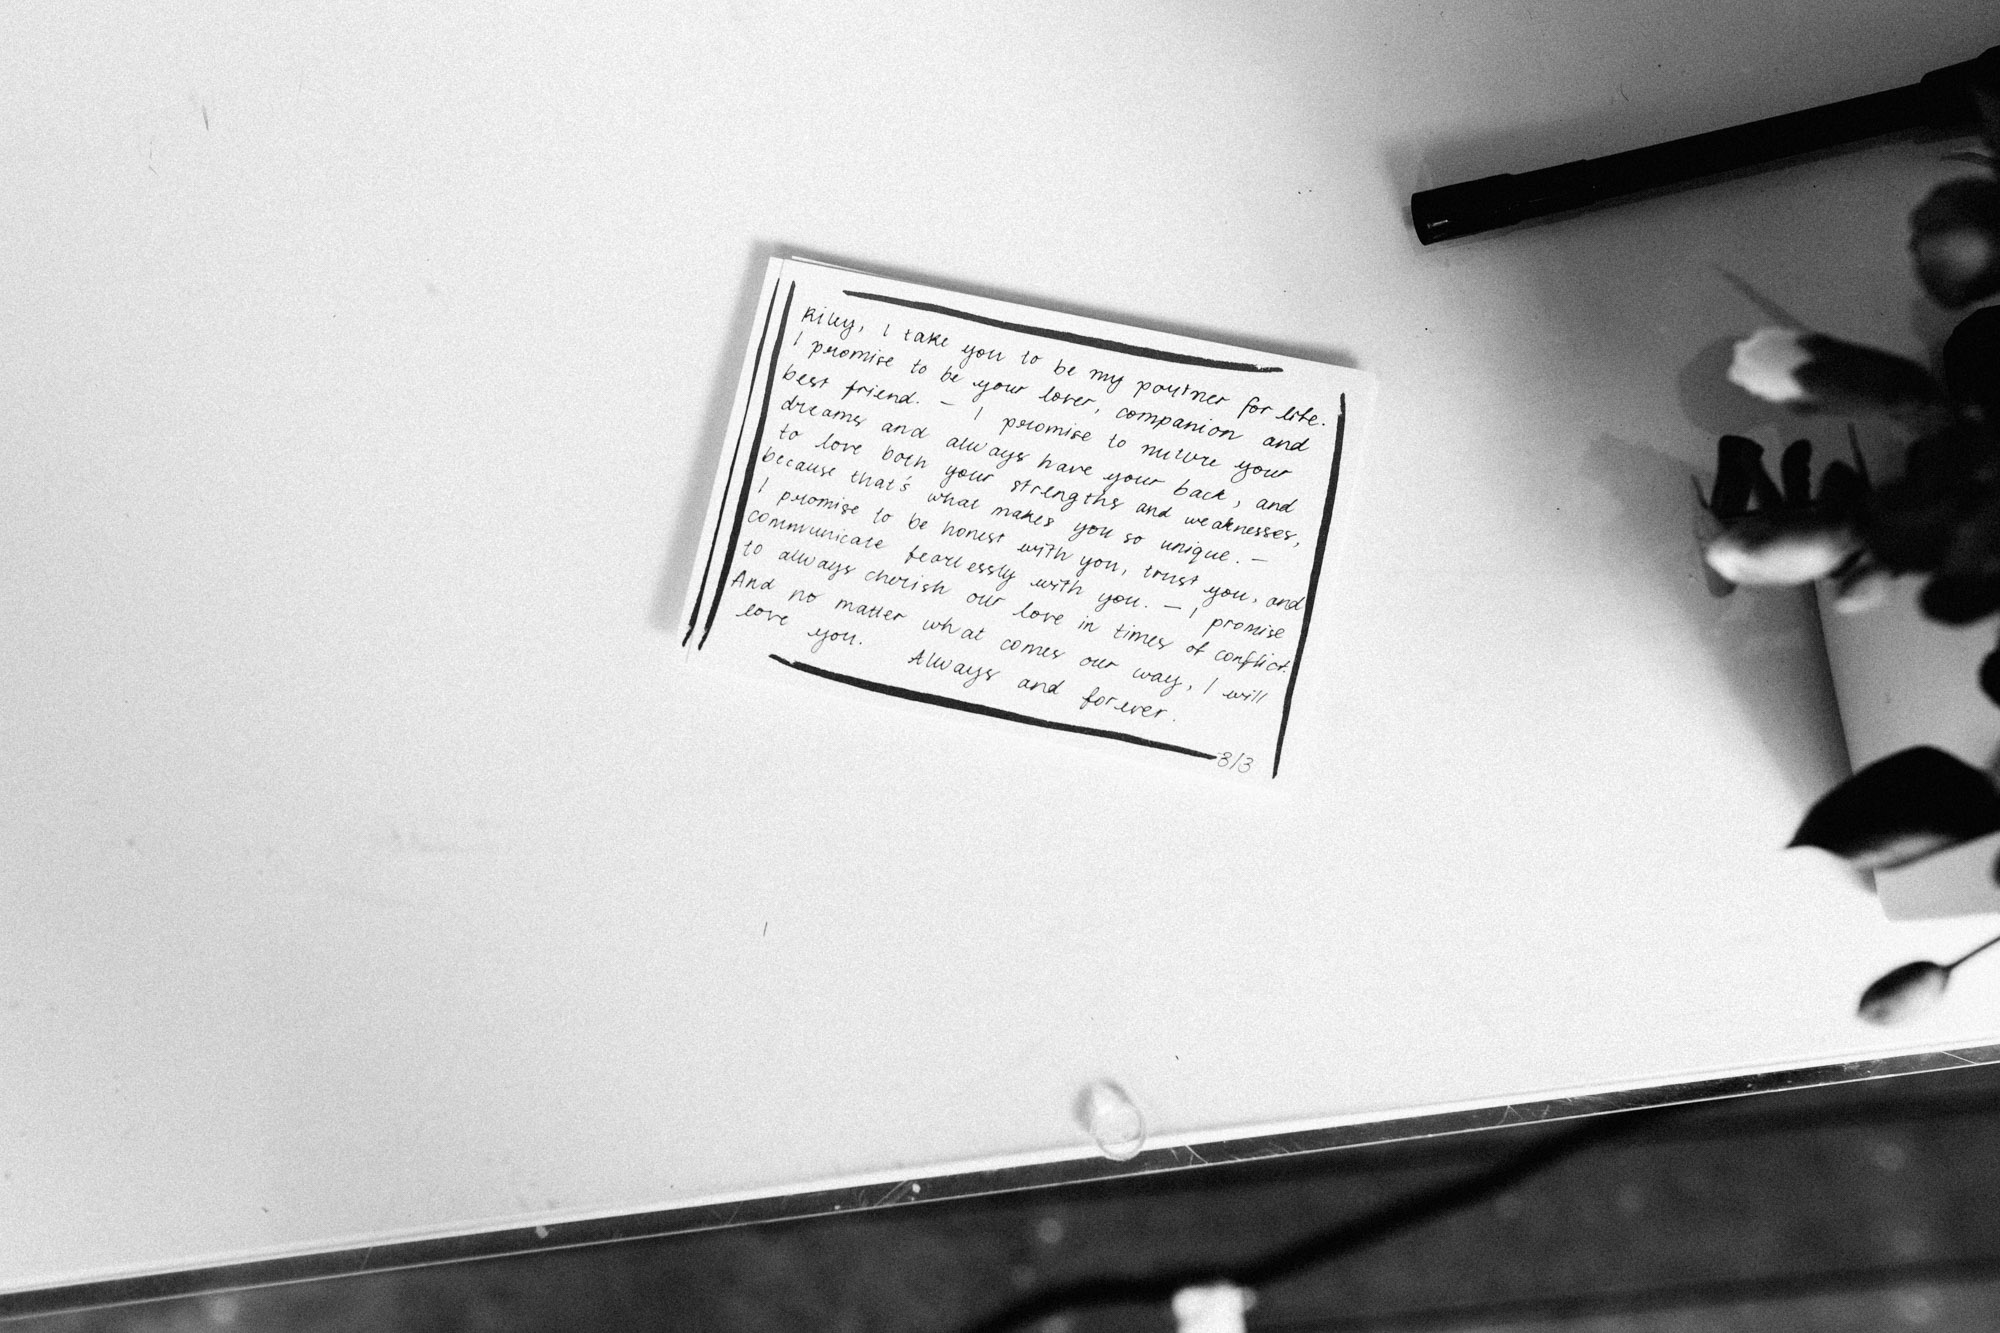 Riley, I take you to be my partner for life.
I promise to be your lover, companion and
best friend. – I promise to nuture your
dreams and always have your back, and
to love both your strengths and weaknesses,
because that's what makes you so unique. –
I promise to be honest with you, trust you, and
communicate fearlessly with you. – I promise
to always cherish our love in times of conflict.
And no matter what comes our way, I will
love you. Always and forever.
3/3